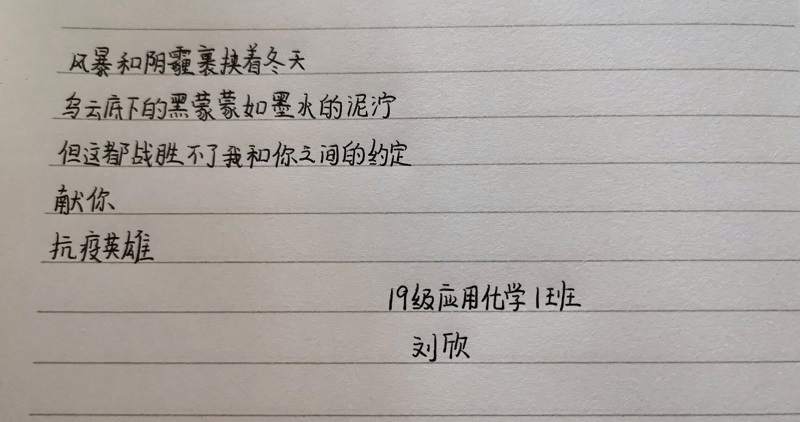 风暴和阴霾裹挟着冬天
乌云底下的黑蒙蒙如墨水的泥泞
但这都战胜不了我和你之间的约定
献你、
抗疫英雄
19级应用化学1班
刘欣